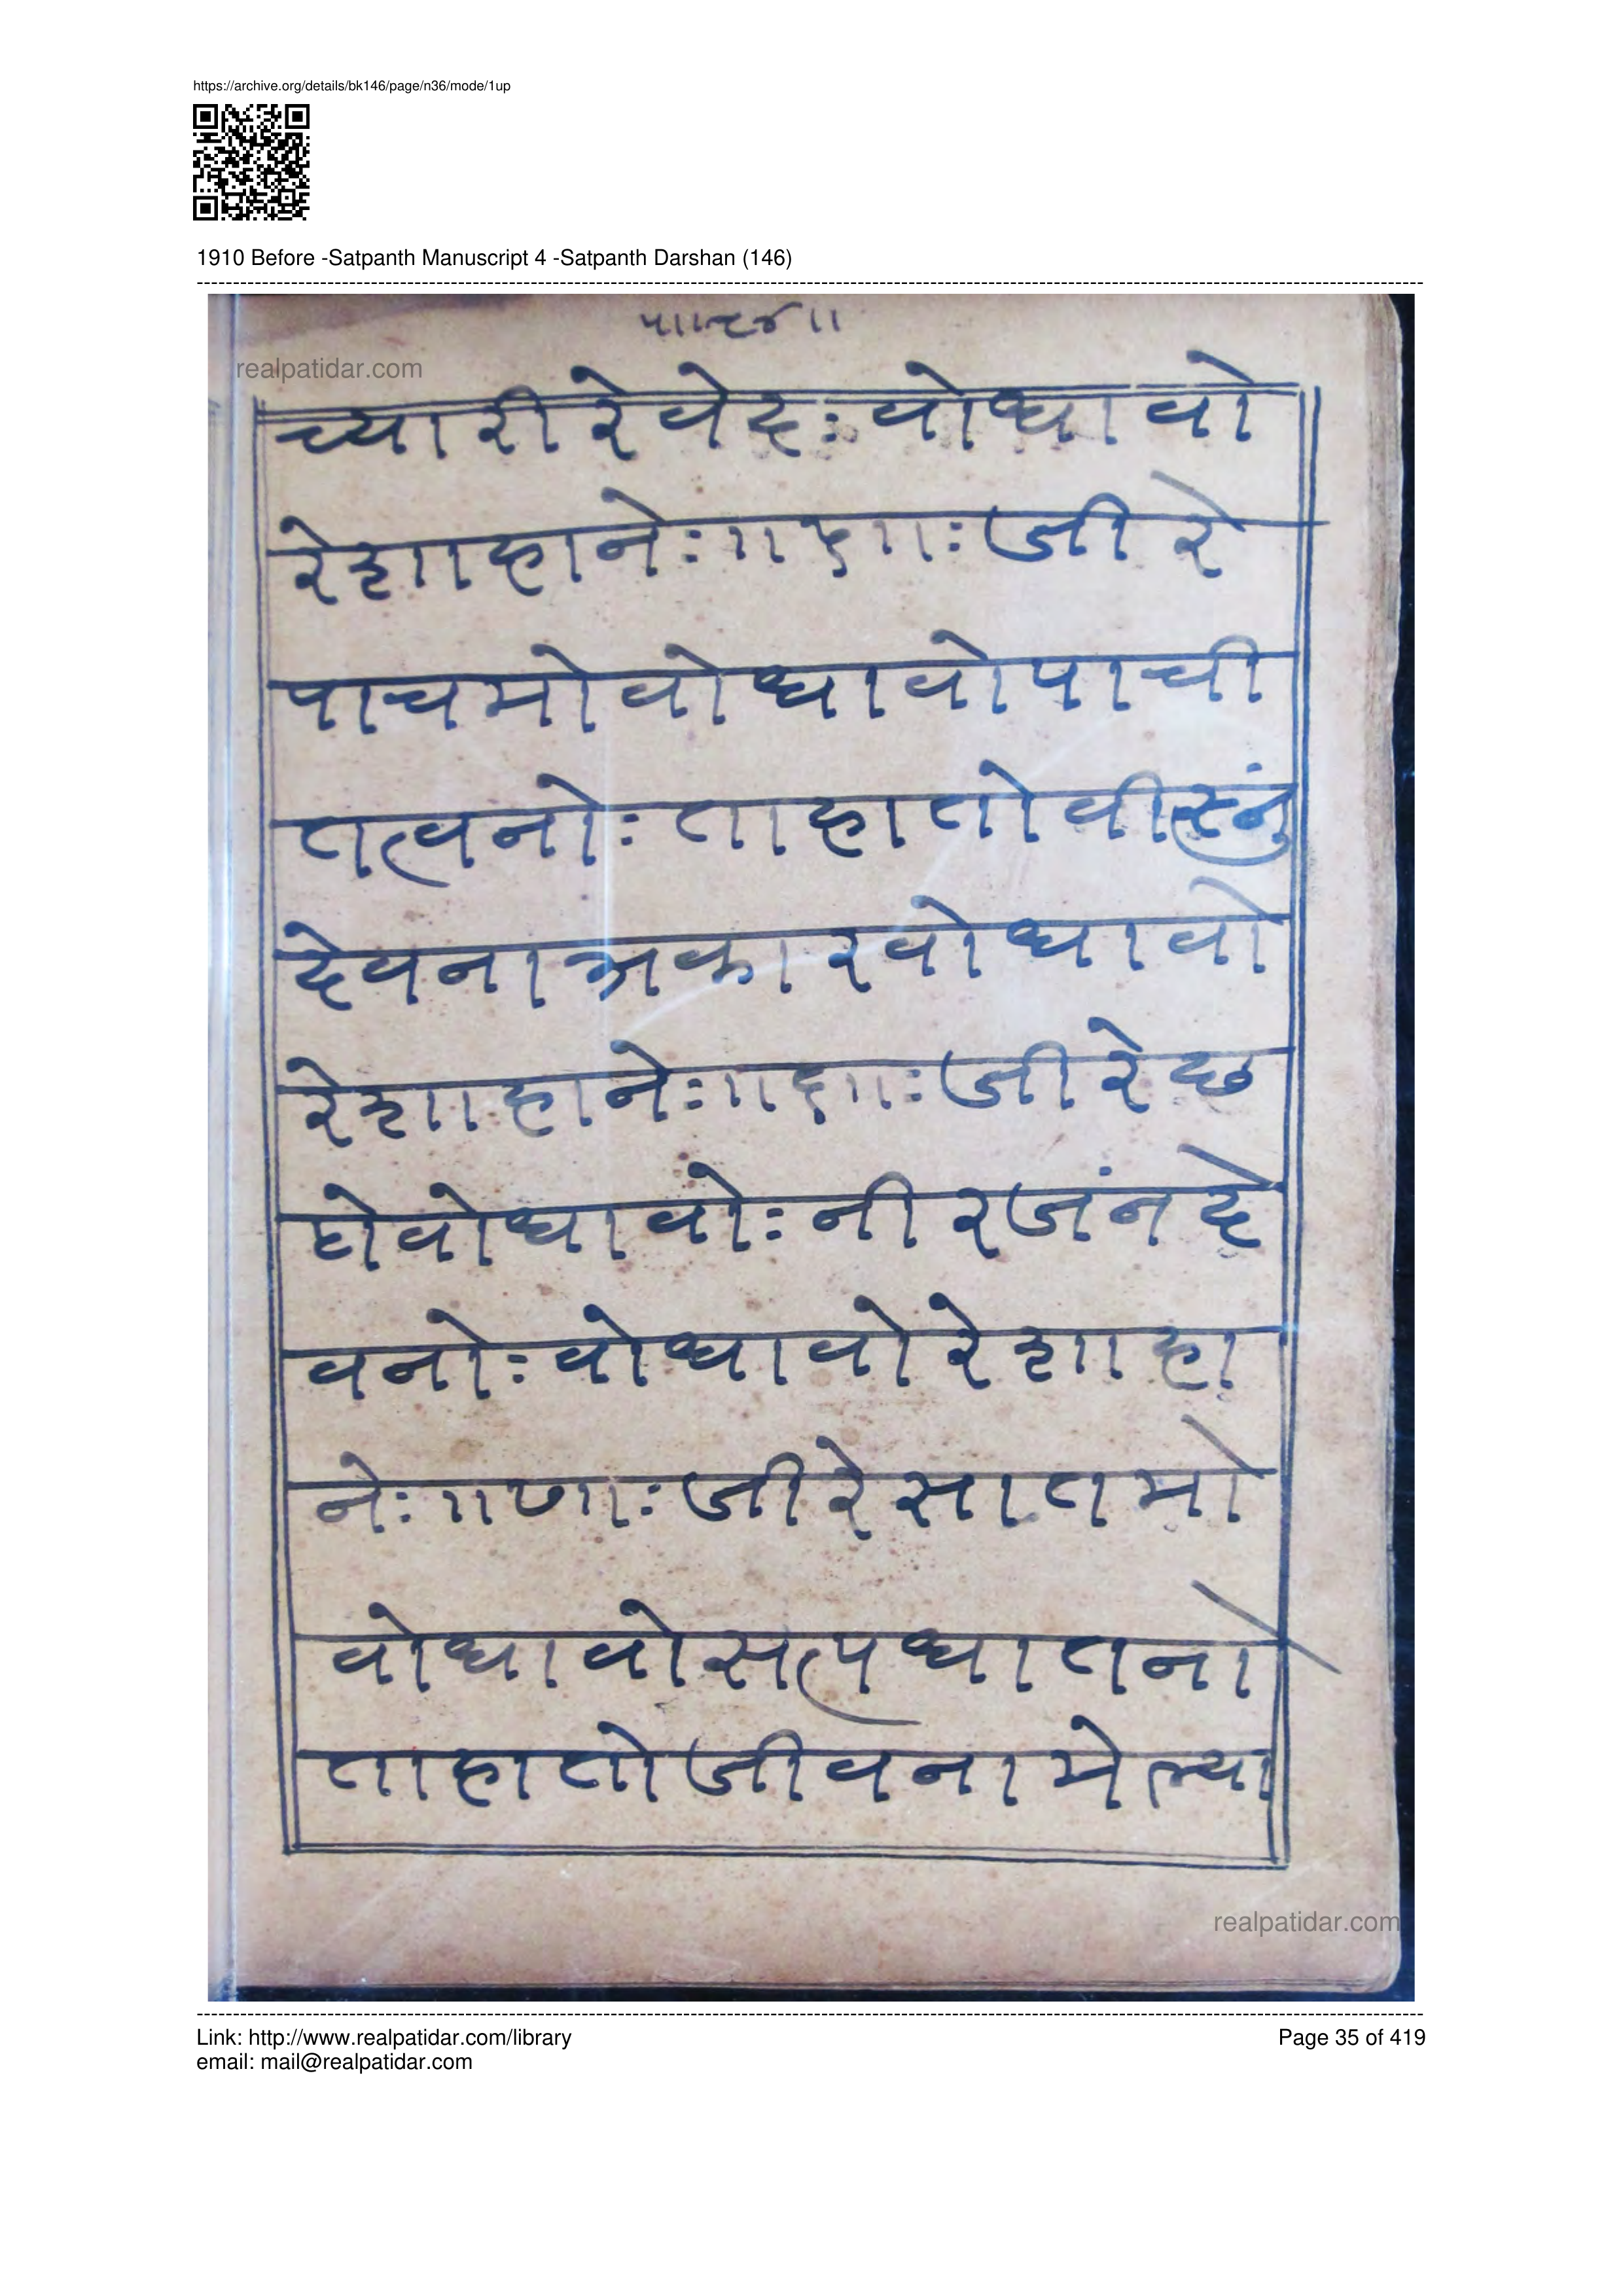 https://archive.org/details/bk146/page/n36/mode/1up
1910 Before -Satpanth Manuscript 4 -Satpanth Darshan (146)
realpatidar.com
च्यारीरेवेदः वोधावो
रेशाहानेः ॥ ५ ॥ः जीरे
पाचमोवोधावोपाची
तत्वनोः ताहातोवीस्नुं
देवनाअकारवोधावो
रेशाहानेः ॥ ६ ॥ः जीरेछ
ठोवोधावोः नीरजंनदे
वनोः वोधावोरेशाहा
नेः ॥ ७ ॥ः जीरेसातमो
वोधावोसत्पधातनो
ताहातोजीवनामेल्या
realpatidar.com
Link: http://www.realpatidar.com/library
Page 35 of 419
email: mail@realpatidar.com